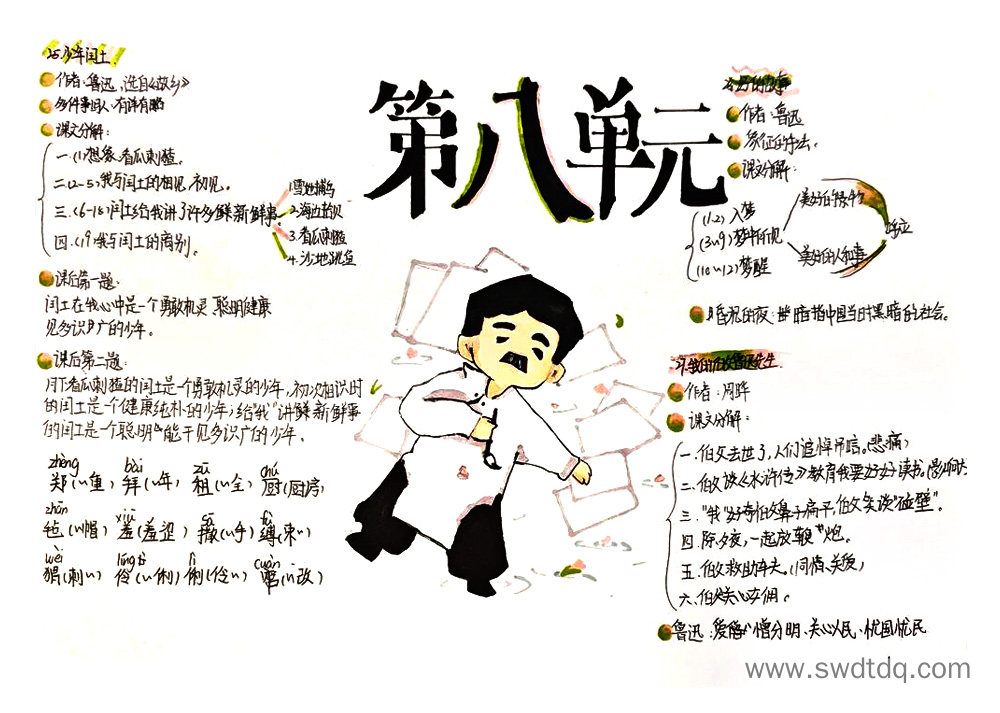 第八单元
25.少年闰土
作者:鲁迅,选自《故乡》
课文分解:
一.(1)想象看瓜刺猹。
二.(2~5)我与闰土的相见、初见。
三.(6~18)闰土给我讲了许多新鲜事
1.雪地捕鸟
2.海边拾贝
3.看瓜刺猹
4.沙地跳鱼
四.(19)我与闰土的离别。
课后第一题:
闰土在我心中是一个勇敢机灵、聪明健康
见多识广的少年。
课后第二题:
月下看瓜刺猹的闰土是一个勇敢机灵的少年,初次相识时
的闰土是一个健康纯朴的少年;给"我"讲新鲜事
的闰土是一个聪明能干见多识广的少年.
zhèng bài zū chú
郑(~重) 拜(~年) 租(~金) 厨(厨房)
zhān xiū
毡(~帽) 羞(羞涩) 撒(~手) 缚(束~)
wèi
猬(刺~) 伶(~俐) 俐(伶~) 窜(~改)
作者:鲁迅
象征的手法。
课文分解:
(1.2)入梦
(3~9)梦中所见
(10~12)梦醒
美好的人和事
昏沉的夜:暗指中国当时黑暗的社会。
27.我的伯父鲁迅先生
作者:周晔
课文分解:
一.伯父去世了,人们追悼吊唁。(悲痛)
二.伯父谈《水浒传》教育我要好好读书。
三."我"好奇伯父鼻子扁平,伯父笑谈"碰壁"。
四.除夕夜,一起放鞭炮。
五.伯父救助车夫。(同情、关爱)
六.伯父关心女佣。
鲁迅:爱憎分明、关心人民、忧国忧民
www.swdtdq.com